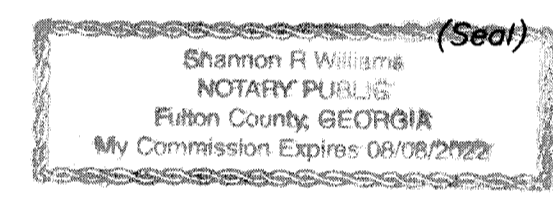 (Seal)
Shannon R Williams
NOTARY PUBLIC
Fulton County, GEORGIA
My Commission Expires 08/08/2022